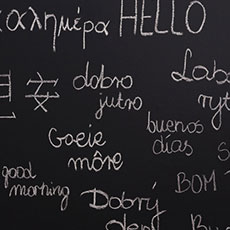 καλημέρα HELLO
早安
dobro
jutro
Laba
ryt
Goeie
môre
buenos
días
good
morning
BOM
Dobrý
deň
Bu